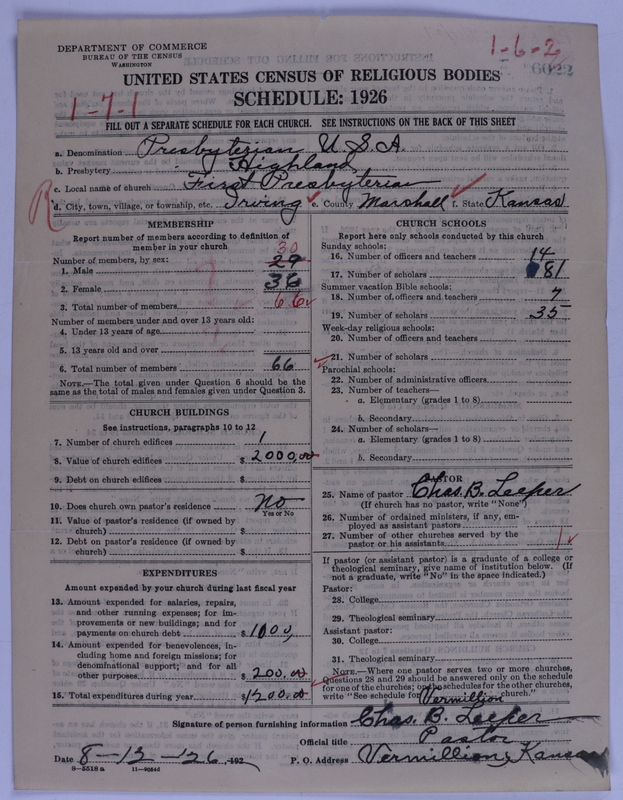 DEPARTMENT OF COMMERCE
BUREAU OF THE CENSUS
WASHINGTON
1-6-2
6022
UNITED STATES CENSUS OF RELIGIOUS BODIES
SCHEDULE: 1926
1-7-1
FILL OUT A SEPARATE SCHEDULE FOR EACH CHURCH. SEE INSTRUCTIONS ON THE BACK OF THIS SHEET
a. Denomination Presbyterian U.S.A.
b. Presbytery Highland
c. Local name of church First Presbyterian
R
d. City, town, village, or township, etc. Irving e. County Marshall f. State Kansas
MEMBERSHIP
Report number of members according to definition of
member in your church
Number of members, by sex: 30
1. Male 29
2. Female 36
3. Total number of members 66
Number of members under and over 13 years old:
4. Under 13 years of age
5. 13 years old and over
6. Total number of members 66
NOTE.—The total given under Question 6 should be the
same as the total of males and females given under Question 3.
CHURCH BUILDINGS
See instructions, paragraphs 10 to 12
7. Number of church edifices 1
8. Value of church edifices $ 2000.00
9. Debt on church edifices $
10. Does church own pastor's residence No
Yes or No
11. Value of pastor's residence (if owned by
church) $
12. Debt on pastor's residence (if owned by
church) $
EXPENDITURES
Amount expended by your church during last fiscal year
13. Amount expended for salaries, repairs,
and other running expenses; for im-
provements or new buildings; and for
payments on church debt $ 1000,
14. Amount expended for benevolences, in-
cluding home and foreign missions; for
denominational support; and for all
other purposes $ 200.00
15. Total expenditures during year $ 1200.00
CHURCH SCHOOLS
Report here only schools conducted by this church
Sunday schools:
16. Number of officers and teachers 14
17. Number of scholars 81
Summer vacation Bible schools:
18. Number of officers and teachers 7
19. Number of scholars 35
Week-day religious schools:
20. Number of officers and teachers
21. Number of scholars
Parochial schools:
22. Number of administrative officers
23. Number of teachers—
a. Elementary (grades 1 to 8)
b. Secondary
24. Number of scholars—
a. Elementary (grades 1 to 8)
b. Secondary
PASTOR
25. Name of pastor Chas. B. Leeper
(If church has no pastor, write "None")
26. Number of ordained ministers, if any, em-
ployed as assistant pastors
27. Number of other churches served by the
pastor or his assistants 1
If pastor (or assistant pastor) is a graduate of a college or
theological seminary, give name of institution below. (If
not a graduate, write "No" in the space indicated.)
Pastor:
28. College
29. Theological seminary
Assistant pastor:
30. College
31. Theological seminary
NOTE.—Where one pastor serves two or more churches,
Questions 28 and 29 should be answered only on the schedule
for one of the churches; on the schedules for the other churches,
write "See schedule for Vermillion church."
Signature of person furnishing information Chas. B. Leeper
Official title Pastor
Date 8-12-26, 192 P. O. Address Vermillion, Kansas
8-5518 a 11-9056d